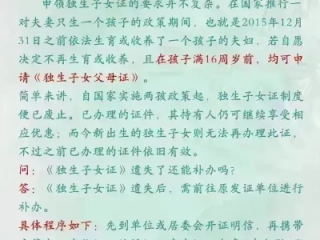 申领独生子女证的要求并不复杂。在国家推行一
对夫妻只生一个孩子的政策期间，也就是2015年12月
31日之前依法生育或收养了一个孩子的夫妇，若自愿
决定不再生育或收养，且在孩子满16周岁前，均可申
请《独生子女父母证》。
简单来讲，自国家实施两孩政策起，独生子女证制度
便已废止。已办理的证件，其持有人仍可继续享受相
应优惠；而今新出生的独生子女则无法再办理此证，
不过之前已办理的证件依旧有效。
问：《独生子女证》遗失了还能补办吗？
答：《独生子女证》遗失后，需前往原发证单位进行
补办。
具体程序如下：先到单位或居委会开证明信，再携带